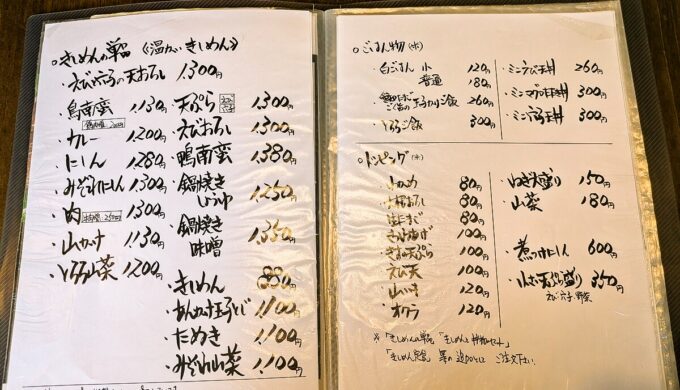 ○きしめんの単品 《温かいきしめん》
・えび穴子の天おろし 1,300円
・鳥南蛮 1,130円
・カレー 1,200円
・にしん 1,280円
・みぞれにしん 1,300円
・肉 1,300円
・山かけ 1,130円
・とろろ山菜 1,200円
・天ぷら 1,300円
・えびおろし 1,300円
・鴨南蛮 1,380円
・鍋焼き
しょうゆ 1,250円
・鍋焼き
味噌 1,350円
・きしめん 880円
・あんかけ玉子とじ 1,100円
・たぬき 1,100円
・みぞれ山菜 1,100円
○ごはん物
・白ごはん 小 120円
普通 180円
玉子かけご飯 260円
・とろろご飯 300円
・ミニえび天丼 260円
・ミニマグロ丼 300円
・ミニ穴子天丼 300円
○トッピング
・わかめ 80円
・大根おろし 80円
80円
100円
天ぷら 100円
・えび天 100円
・山いも 120円
・オクラ 120円
・ねぎ大盛り 150円
・山菜 180円
・煮つけにしん 600円
・小さい天ぷら盛り 350円
えび 穴子 野菜
※「きしめんの単品」「きしめんと丼物セット」
「きしめん定食」等の追加としてご注文下さい